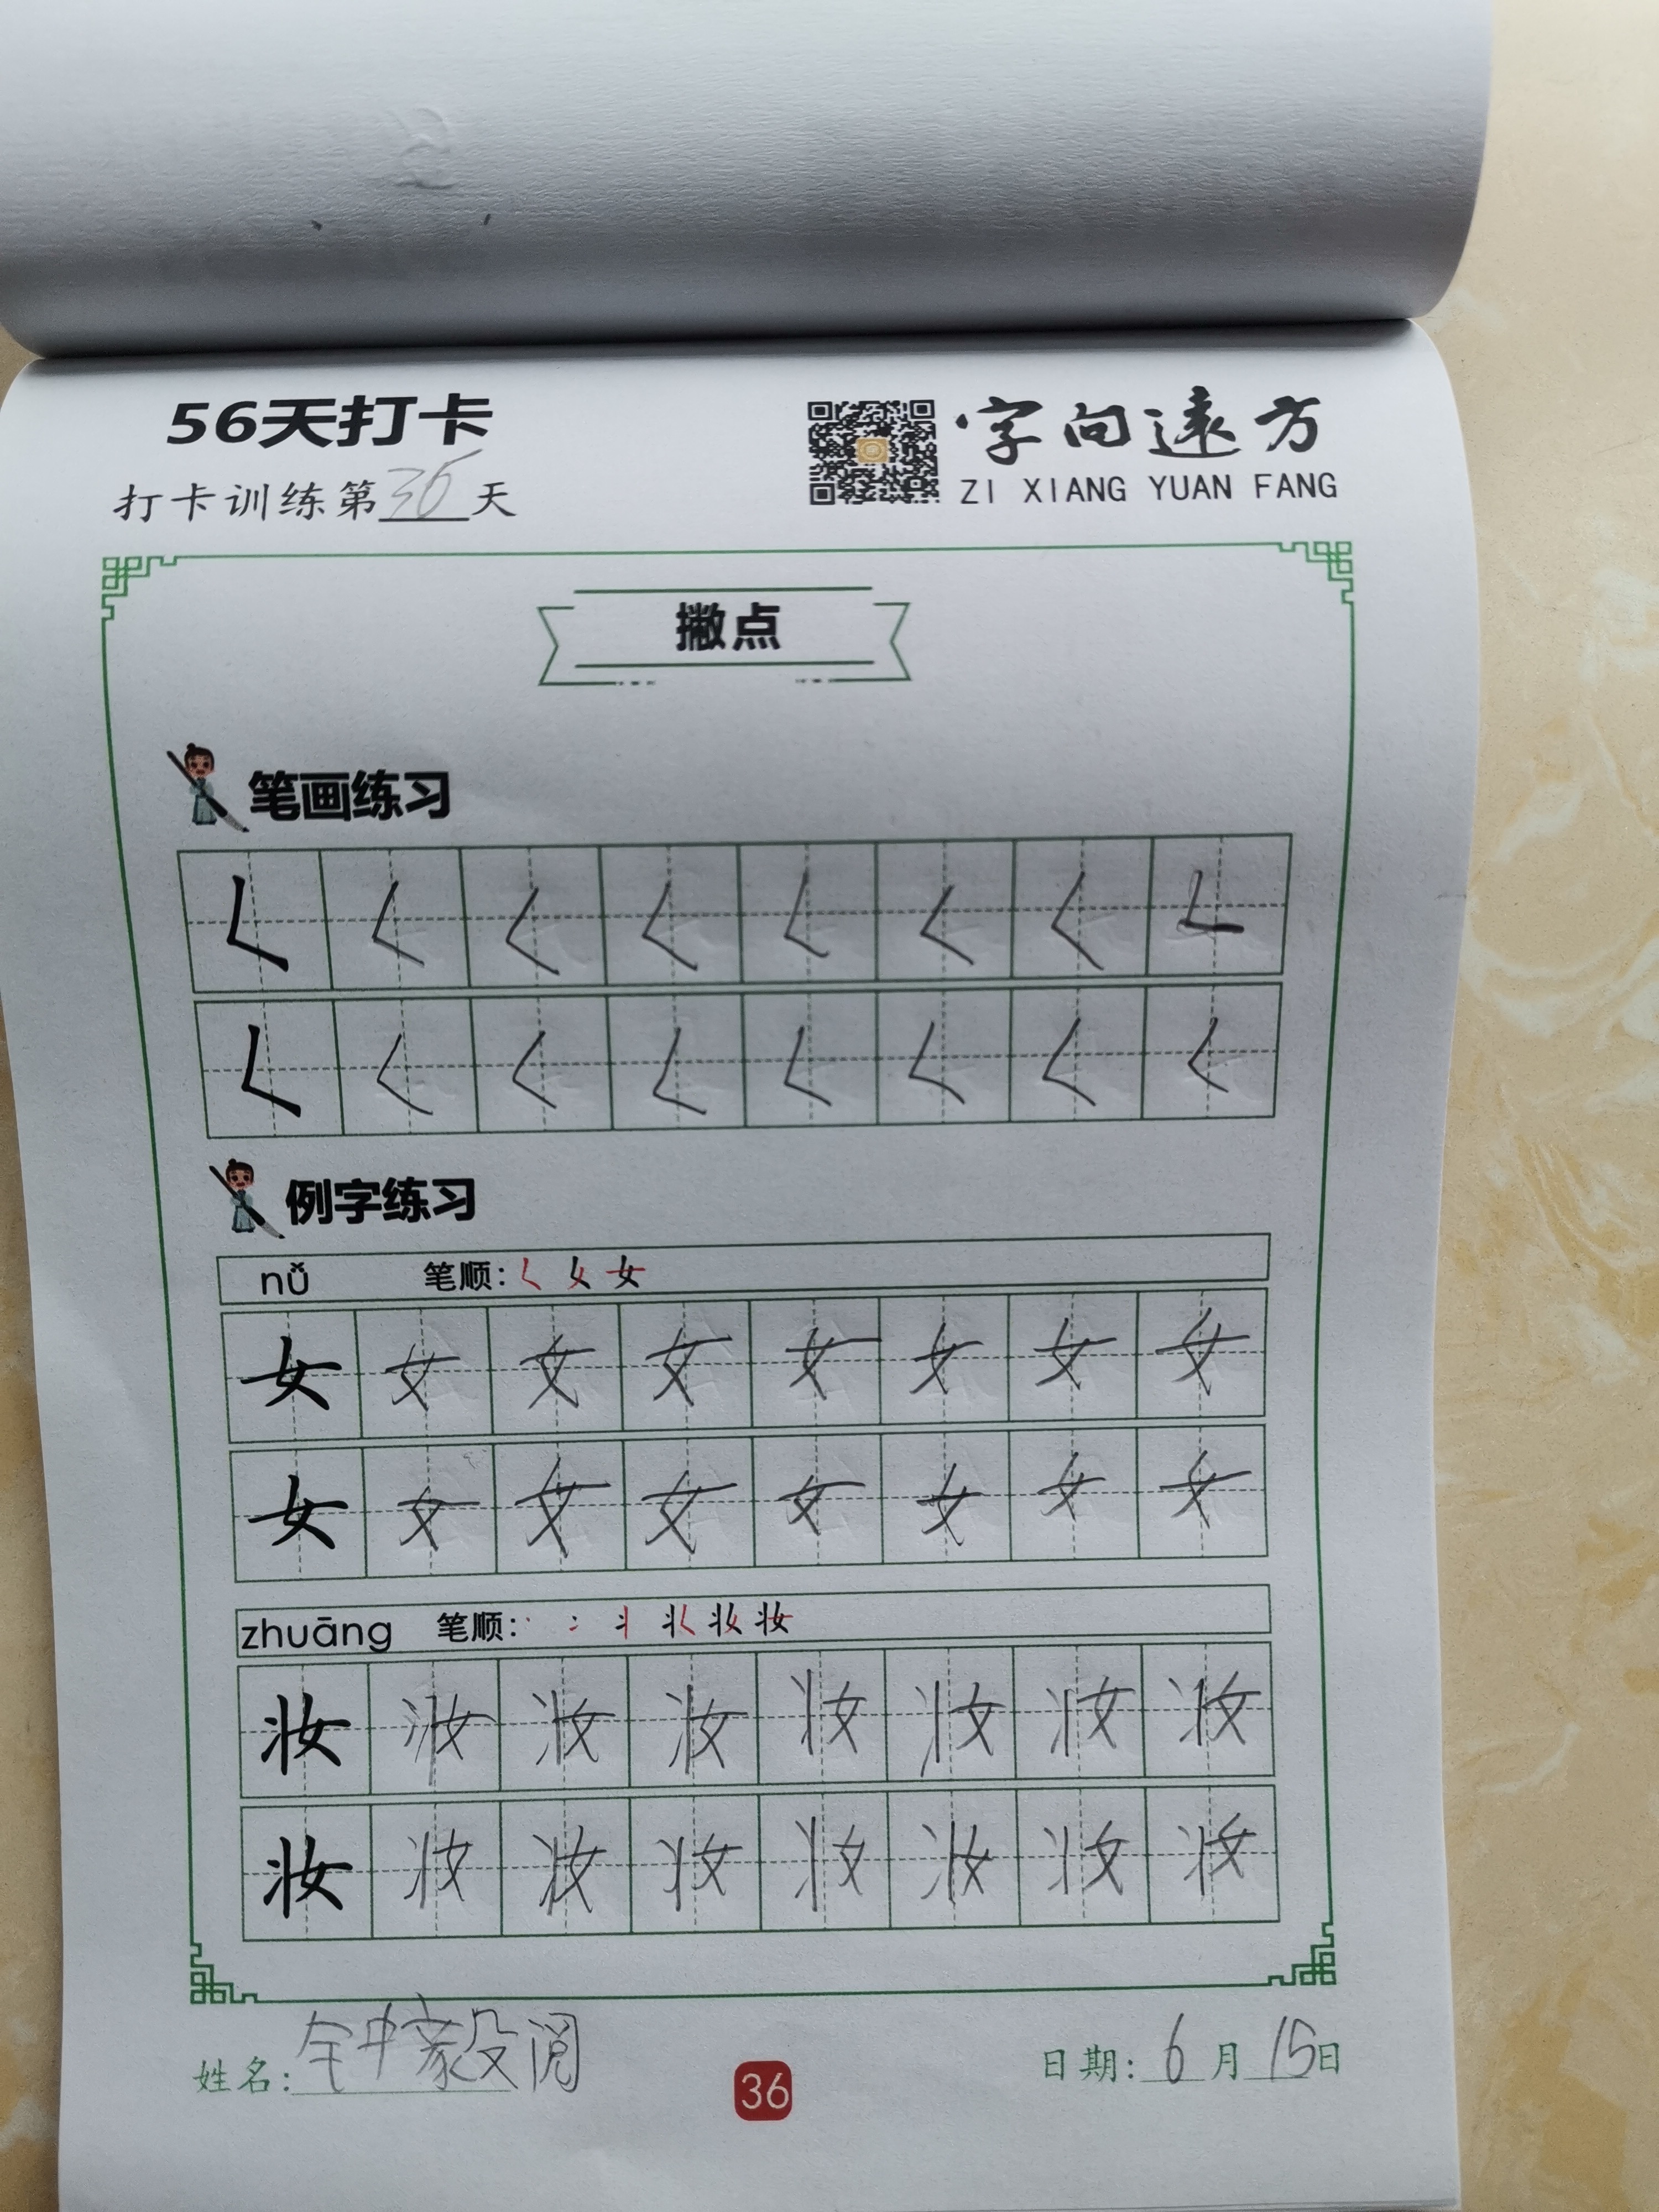 56天打卡
打卡训练第36天
字向遠方
ZI XIANG YUAN FANG
撇点
笔画练习
𡿨 𡿨 𡿨 𡿨 𡿨 𡿨 𡿨 𡿨
𡿨 𡿨 𡿨 𡿨 𡿨 𡿨 𡿨 𡿨
例字练习
nǚ 笔顺: 𡿨 女
女 女 女 女 女 女 女 女
女 女 女 女 女 女 女 女
zhuāng 笔顺: 丬 妆
妆 妆 妆 妆 妆 妆 妆 妆
妆 妆 妆 妆 妆 妆 妆 妆
姓名: 钟毅阅
36
日期: 6月15日